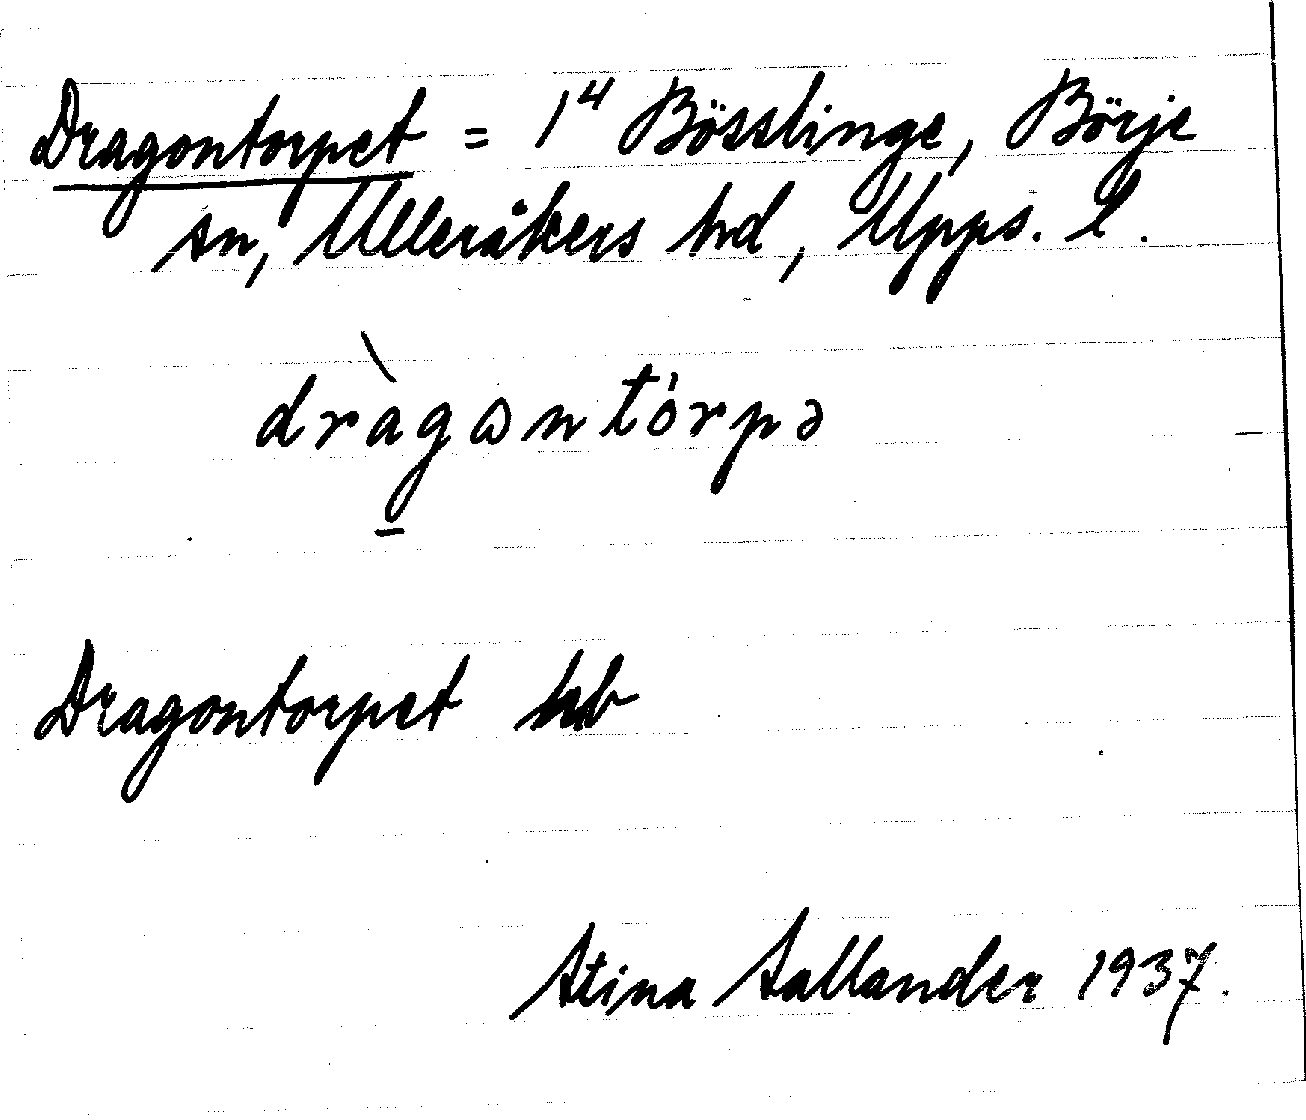 Dragontorpet = 1⁴ Bösslinge, Börje
sn, Ulleråkers hd, Upps. l.
dràgɷntórpə
Dragontorpet hb
Stina Sallander 1937.